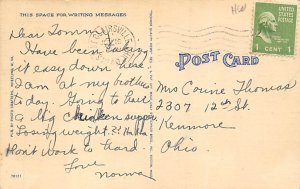 THIS SPACE FOR WRITING MESSAGES
Dear Tommie
Have been taking
it easy down here.
I am at my brothers
to-day. Going to have
a big chicken supper.
Losing weight??
Don't work to hard.
Love
Norma
POST CARD
Mrs Thomas
2307 12th St
Kenmore
Ohio.
UNITED STATES
POSTAGE
1 CENT 1